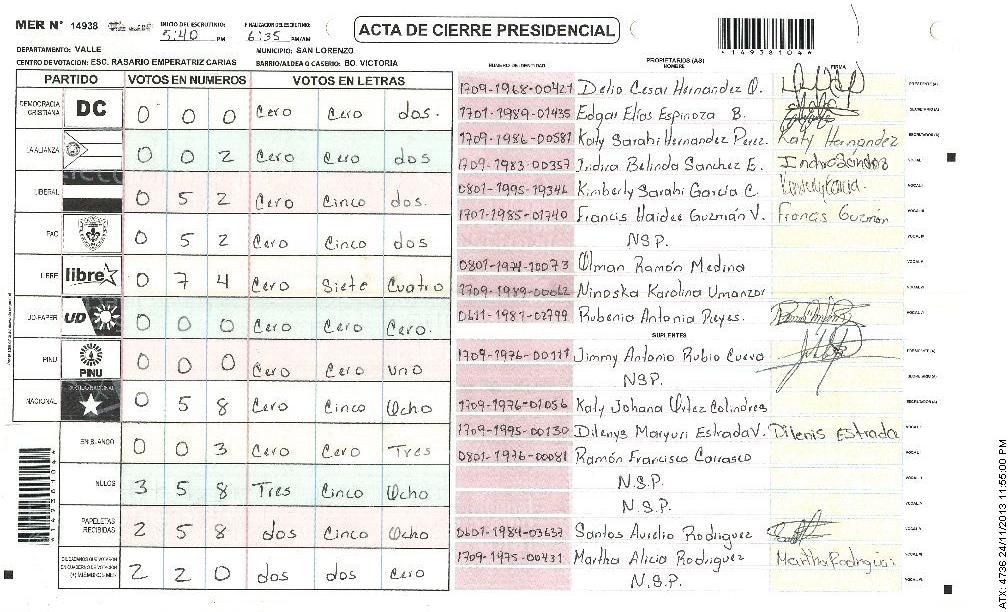 MER N° 14938 INICIO DEL ESCRUTINIO: 5:40 PM FINALIZACION DEL ESCRUTINIO: 6:35 PM/AM
ACTA DE CIERRE PRESIDENCIAL
*14938104*
DEPARTAMENTO: VALLE MUNICIPIO: SAN LORENZO
CENTRO DE VOTACION: ESC. RASARIO EMPERATRIZ CARIAS BARRIO/ALDEA O CASERIO: BO. VICTORIA
PARTIDO VOTOS EN NUMEROS VOTOS EN LETRAS
DEMOCRACIA CRISTIANA DC 0 0 0 Cero Cero dos.
LA ALIANZA 0 0 2 Cero Cero dos
LIBERAL 0 5 2 Cero Cinco dos.
PAC 0 5 2 Cero Cinco dos
LIBRE libre 0 7 4 Cero Siete Cuatro
UD-FAPER UD 0 0 0 Cero Cero Cero.
PINU PINU 0 0 0 Cero Cero uno
NACIONAL 0 5 8 Cero Cinco Ocho
EN BLANCO 0 0 3 Cero Cero Tres
NULOS 3 5 8 Tres Cinco Ocho
PAPELETAS RECIBIDAS 2 5 8 dos Cinco Ocho
2 2 0 dos dos Cero
NUMERO DE IDENTIDAD PROPIETARIOS (AS) NOMBRE FIRMA
1709-1968-00421 Delio Cesar Hernandez O. PRESIDENTE(A)
1701-1989-01435 Edgar Elías Espinoza B. SECRETARIO(A)
1709-1986-00581 Katy Sarahi Hernandez Perez. Katy Hernandez ESCRUTADOR(A)
1709-1983-00357 Indira Belinda Sanchez E. VOCAL I
0801-1995-19346 Kimberly Sarahi Garcia C.
1701-1985-01740 Francis Haidee Guzmán V. Francis Guzmán
NSP.
0801-1974-10073 Olman Ramón Medina
1709-1989-00062 Ninoska Karolina Umanzor
0611-1981-02799 Rubenia Antonia Reyes.
SUPLENTES
1709-1976-00111 Jimmy Antonio Rubio Cuevo PRESIDENTE (A)
NSP. SECRETARIO (A)
1709-1976-01056 Katy Johana
1709-1995-00130 Dilenys Maryuri Estrada V. Dilenis Estrada
0801-1976-00081 Ramón Francisco Carrasco
N.S.P.
N.S.P.
0601-1984-03637 Santos Aurelio Rodriguez
1709-1975-00431 Martha Alicia Rodriguez Martha Rodriguez
N.S.P.
*149381044*
ATX: 4736 24/11/2013 11:55:00 PM